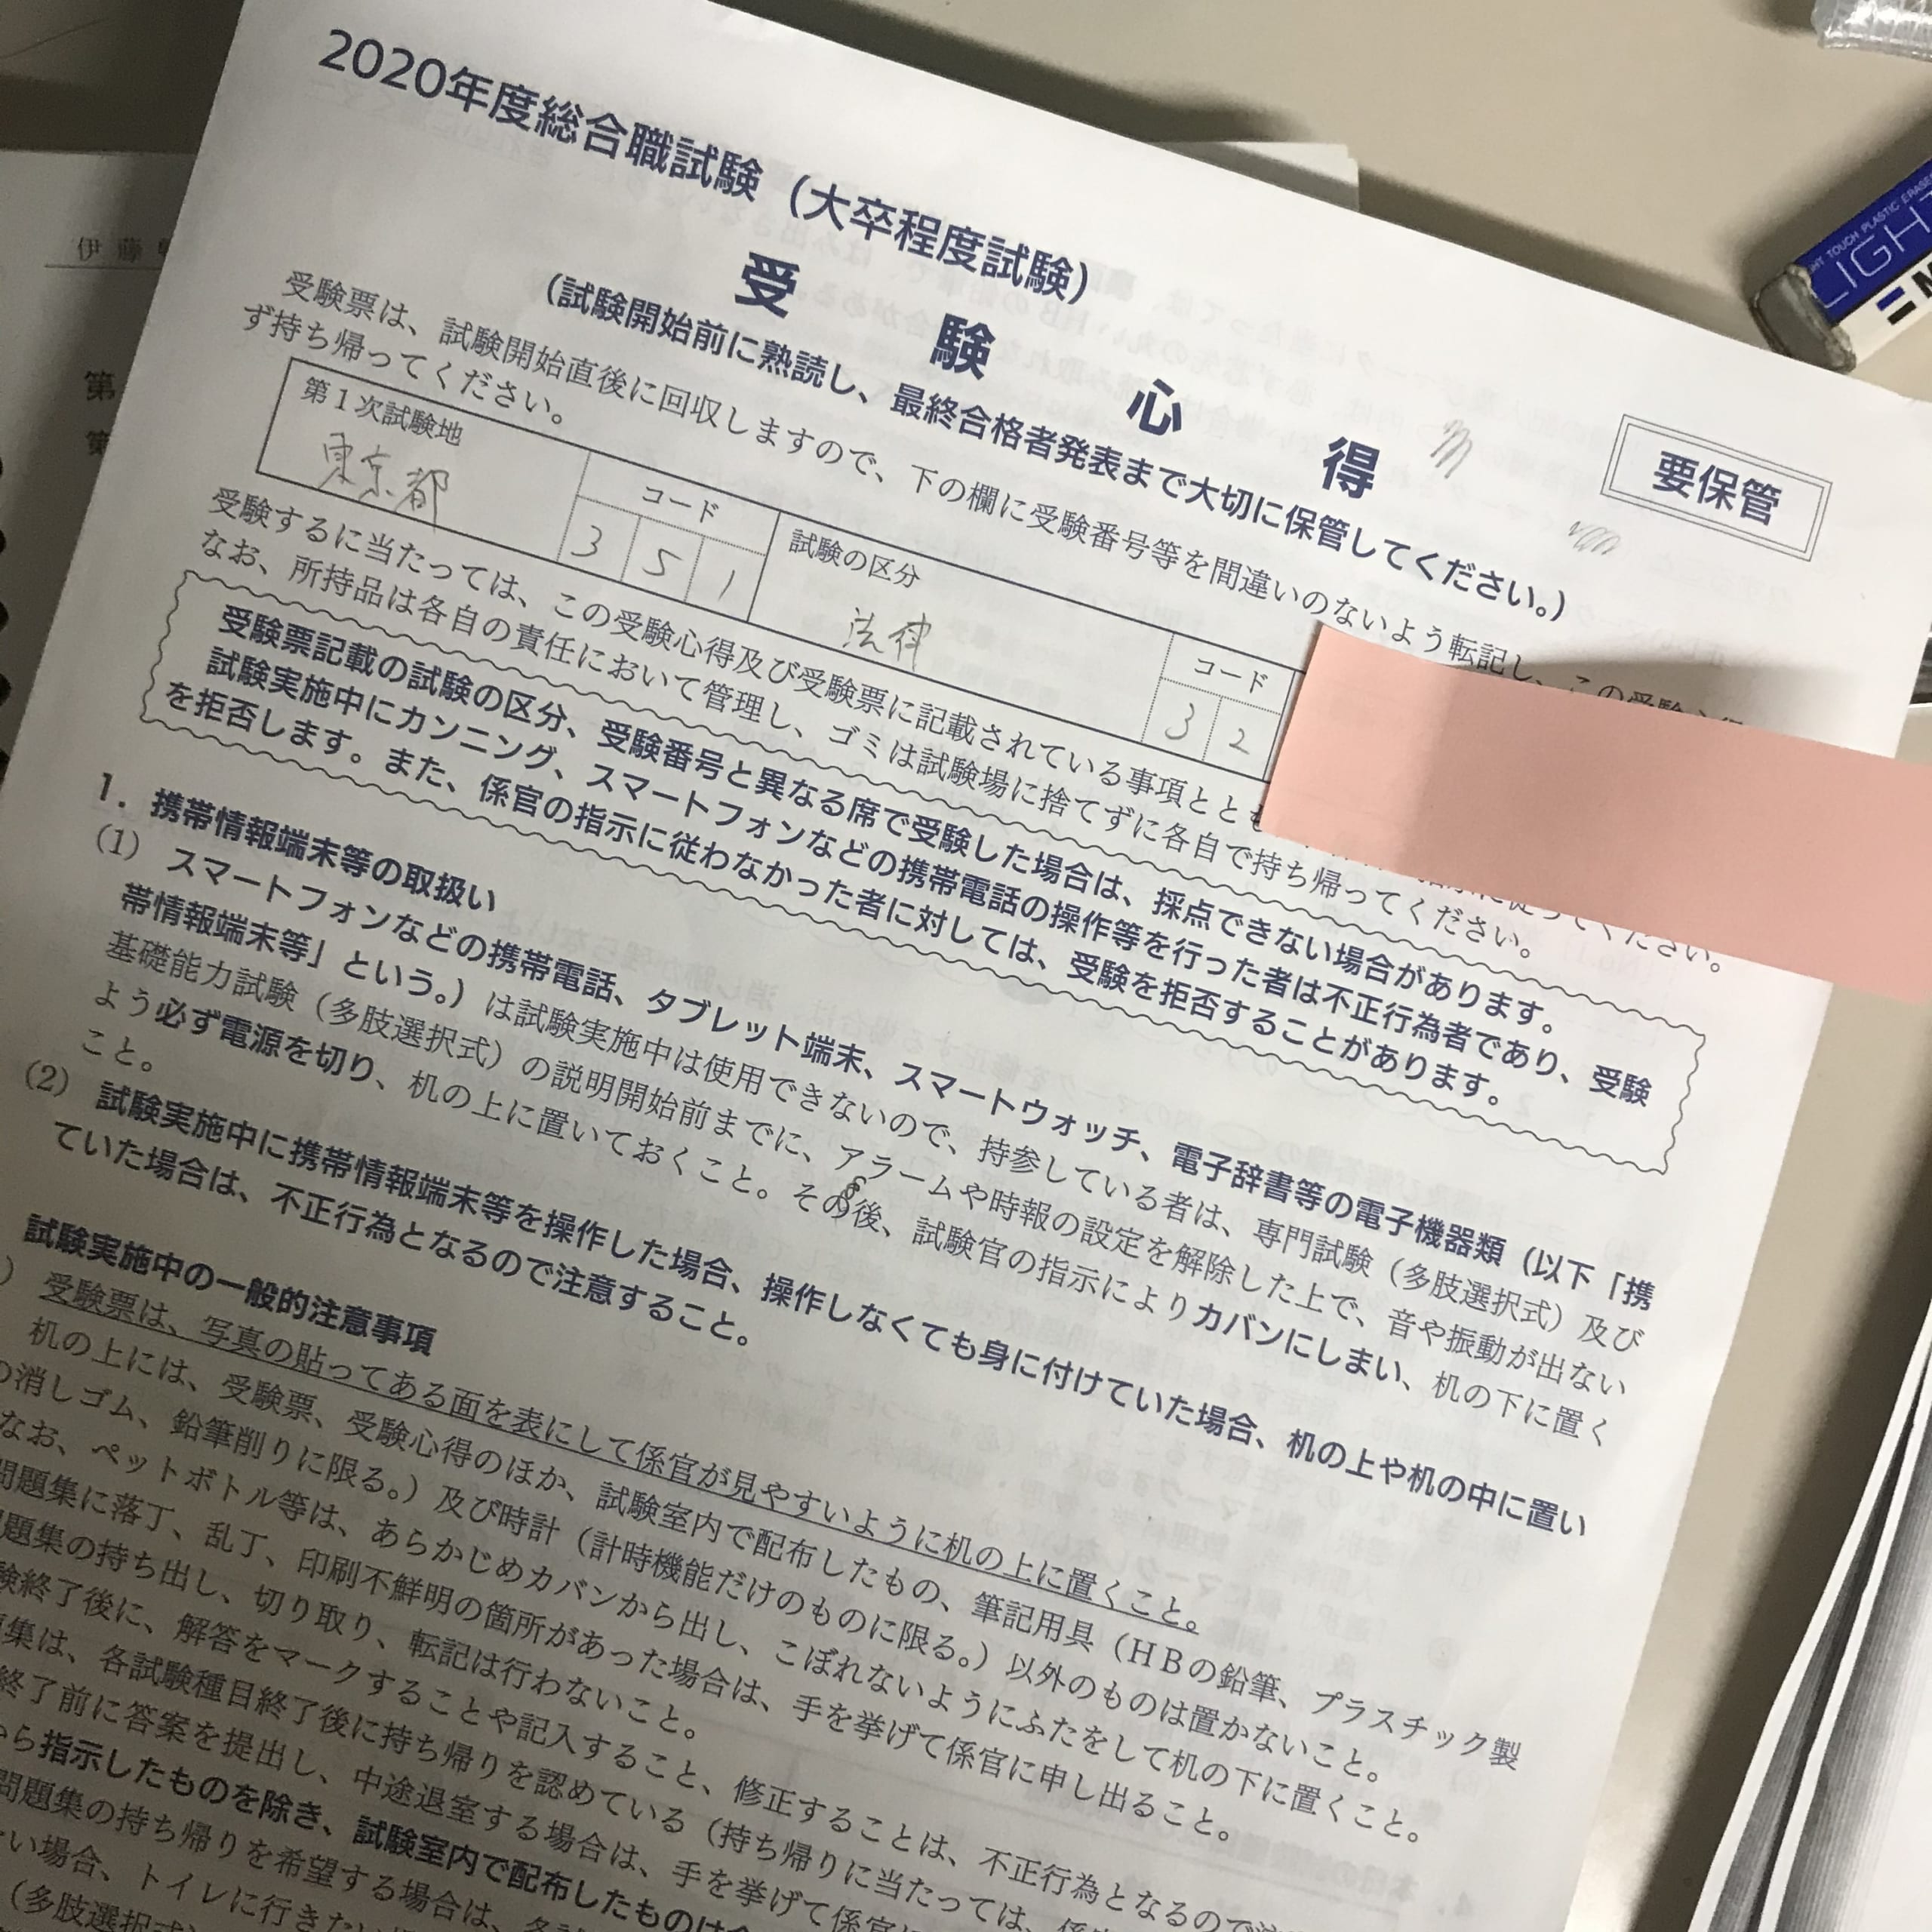 2020年度総合職試験（大卒程度試験）
受験心得
要保管
（試験開始前に熟読し、最終合格者発表まで大切に保管してください。）
受験票は、試験開始直後に回収しますので、下の欄に受験番号等を間違いのないよう転記し、この受験心得
ず持ち帰ってください。
第1次試験地
東京都
コード
3 5 1
試験の区分
法律
コード
3 2
受験するに当たっては、この受験心得及び受験票に記載されている事項ととも
に従ってください。
なお、所持品は各自の責任において管理し、ゴミは試験場に捨てずに各自で持ち帰ってください。
受験票記載の試験の区分、受験番号と異なる席で受験した場合は、採点できない場合があります。
試験実施中にカンニング、スマートフォンなどの携帯電話の操作等を行った者は不正行為者であり、受験
を拒否します。また、係官の指示に従わなかった者に対しては、受験を拒否することがあります。
1．携帯情報端末等の取扱い
(1) スマートフォンなどの携帯電話、タブレット端末、スマートウォッチ、電子辞書等の電子機器類（以下「携
帯情報端末等」という。）は試験実施中は使用できないので、持参している者は、専門試験（多肢選択式）及び
基礎能力試験（多肢選択式）の説明開始前までに、アラームや時報の設定を解除した上で、音や振動が出ない
よう必ず電源を切り、机の上に置いておくこと。その後、試験官の指示によりカバンにしまい、机の下に置く
こと。
(2) 試験実施中に携帯情報端末等を操作した場合、操作しなくても身に付けていた場合、机の上や机の中に置い
ていた場合は、不正行為となるので注意すること。
試験実施中の一般的注意事項
) 受験票は、写真の貼ってある面を表にして係官が見やすいように机の上に置くこと。
机の上には、受験票、受験心得のほか、試験室内で配布したもの、筆記用具（ＨＢの鉛筆、プラスチック製
の消しゴム、鉛筆削りに限る。）及び時計（計時機能だけのものに限る。）以外のものは置かないこと。
なお、ペットボトル等は、あらかじめカバンから出し、こぼれないようにふたをして机の下に置くこと。
問題集に落丁、乱丁、印刷不鮮明の箇所があった場合は、手を挙げて係官に申し出ること。
題集の持ち出し、切り取り、転記は行わないこと。
験終了後に、解答をマークすることや記入すること、修正することは、不正行為となるので
集は、各試験種目終了後に持ち帰りを認めている（持ち帰りに当たっては、
終了前に答案を提出し、中途退室する場合は、手を挙げて係官に
ら指示したものを除き、試験室内で配布したものは
問題集の持ち帰りを希望する場合は、
い場合、トイレに行きたい
（多肢選択式）
伊藤
第
第
LIGHT TOUCH PLASTIC ERASER
LIGHT